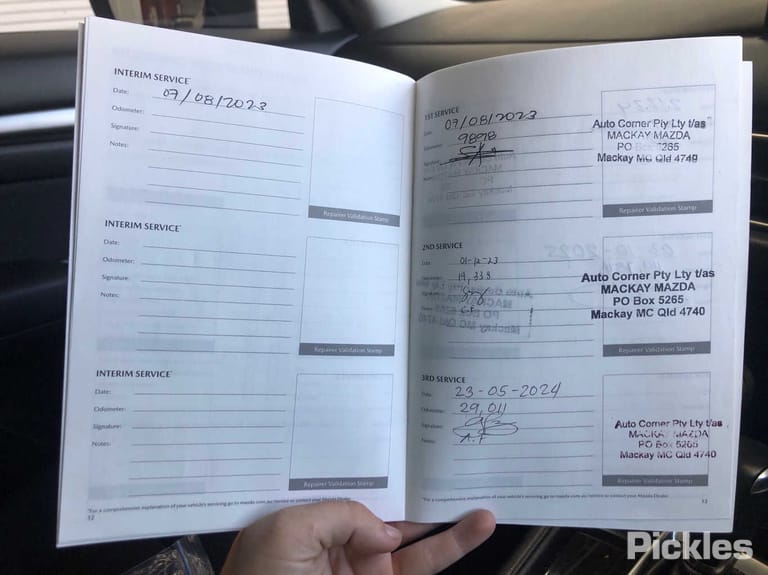 INTERIM SERVICE*
Date: 07/08/2023
Odometer:
Signature:
Notes:
Repairer Validation Stamp
INTERIM SERVICE*
Date:
Odometer:
Signature:
Notes:
Repairer Validation Stamp
INTERIM SERVICE*
Date:
Odometer:
Signature:
Notes:
Repairer Validation Stamp
*For a comprehensive explanation of your vehicle's servicing go to mazda.com.au/service or contact your Mazda Dealer.
12
1ST SERVICE
Date: 07/08/2023
Odometer: 9898
Signature:
Notes:
Auto Corner Pty Lty t/as
MACKAY MAZDA
PO Box 5265
Mackay MC Qld 4740
Repairer Validation Stamp
2ND SERVICE
Date: 01-12-23
Odometer: 19,333
Signature:
Notes:
Auto Corner Pty Lty t/as
MACKAY MAZDA
PO Box 5265
Mackay MC Qld 4740
Repairer Validation Stamp
3RD SERVICE
Date: 23-05-2024
Odometer: 29,011
Signature:
Notes: A.F
Auto Corner Pty Lty t/as
MACKAY MAZDA
PO Box 5265
Mackay MC Qld 4740
Repairer Validation Stamp
*For a comprehensive explanation of your vehicle's servicing go to mazda.com.au/service or contact your Mazda Dealer.
13
Pickles